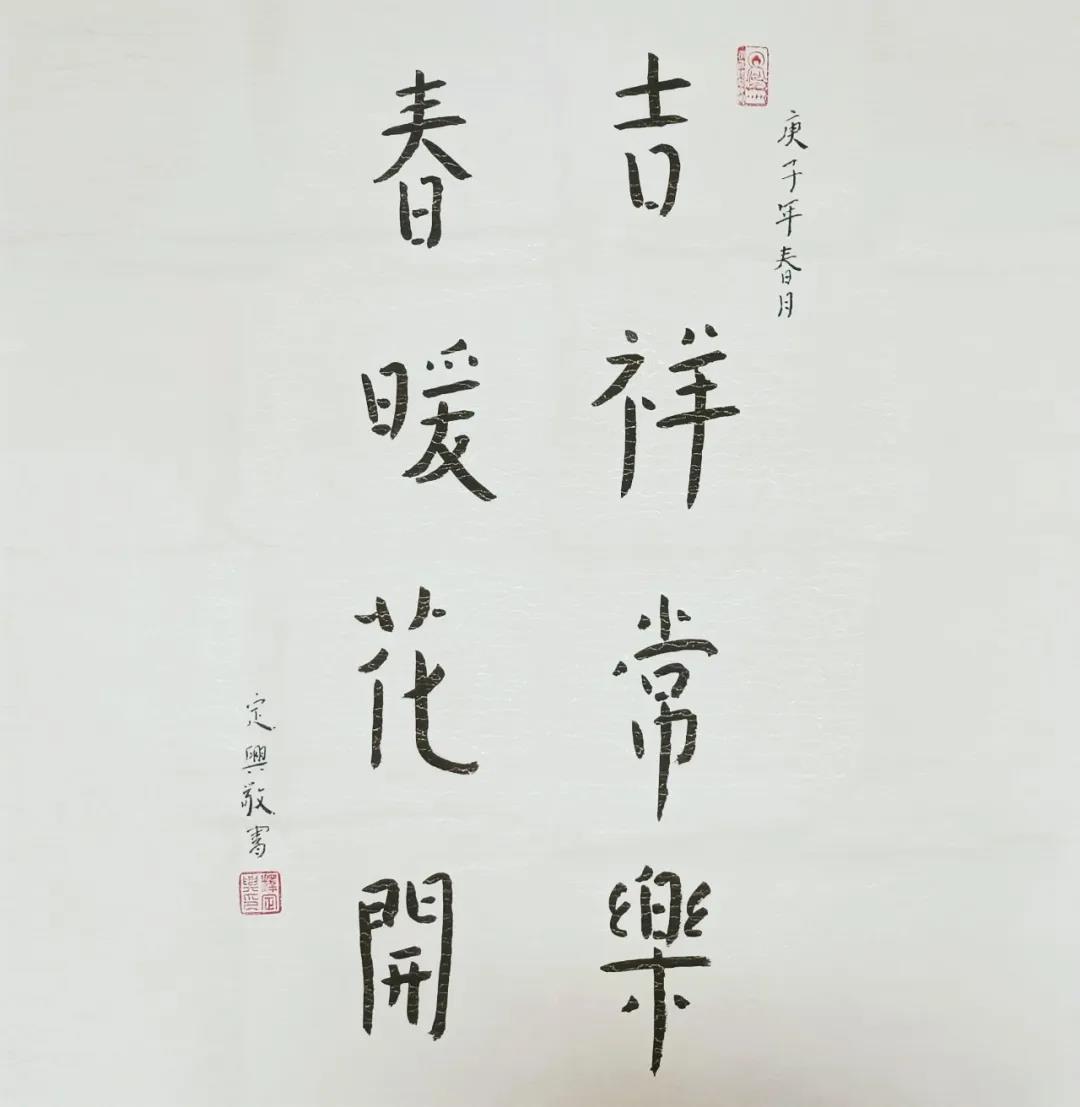 庚子年春月
吉祥常樂
春暖花開
定興敬書
釋定興印